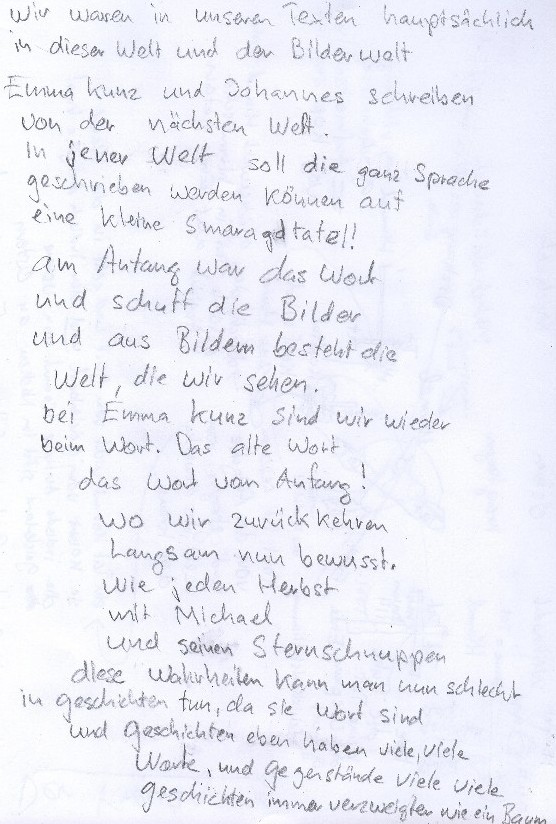 wir waren in unseren Texten hauptsächlich
in dieser Welt und der Bilderwelt
Emma Kunz und Johannes schreiben
von der nächsten Welt.
In jener Welt soll die ganz Sprache
geschrieben werden können auf
eine kleine Smaragdtafel!
am Anfang war das Wort
und schuff die Bilder
und aus Bildern besteht die
Welt, die wir sehen.
bei Emma Kunz sind wir wieder
beim Wort. Das alte Wort
das Wort von Anfang!
wo wir zurückkehren
langsam nun bewusst.
wie jeden Herbst
mit Michael
und seinen Sternschnuppen
diese Wahrheiten kann man nun schlecht
in geschichten tun, da sie Wort sind
und Geschichten eben haben viele, viele
Worte, und gegenstände viele viele
geschichten immer verzweigter wie ein Baum